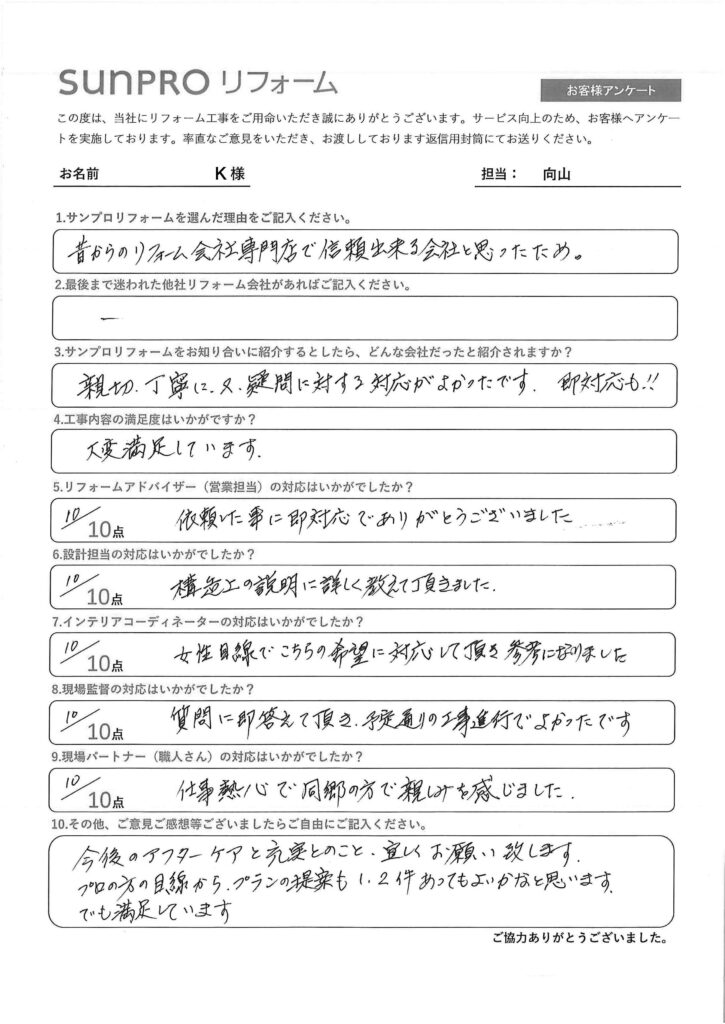 sunPRO リフォーム
お客様アンケート
この度は、当社にリフォーム工事をご用命いただき誠にありがとうございます。サービス向上のため、お客様へアンケー
トを実施しております。率直なご意見をいただき、お渡ししております返信用封筒にてお送りください。
お名前 K 様 担当： 向山
1.サンプロリフォームを選んだ理由をご記入ください。
昔からのリフォーム会社専門店で信頼出来る会社と思ったため。
2.最後まで迷われた他社リフォーム会社があればご記入ください。
ー
3.サンプロリフォームをお知り合いに紹介するとしたら、どんな会社だったと紹介されますか？
親切、丁寧に、又、疑問に対する対応がよかったです。 即対応も!!
4.工事内容の満足度はいかがですか？
大変満足しています。
5.リフォームアドバイザー（営業担当）の対応はいかがでしたか？
10/10点 依頼した事に即対応でありがとうございました
6.設計担当の対応はいかがでしたか？
10/10点 構造上の説明に詳しく教えて頂きました.
7.インテリアコーディネーターの対応はいかがでしたか？
10/10点 女性目線でこちらの希望に対応して頂き参考になりました
8.現場監督の対応はいかがでしたか？
10/10点 質問に即答えて頂き、予定通りの工事進行でよかったです
9.現場パートナー（職人さん）の対応はいかがでしたか？
10/10点 仕事熱心で同郷の方で親しみを感じました.
10.その他、ご意見ご感想等ございましたらご自由にご記入ください。
今後のアフターケアと充実とのこと、宜しくお願い致します.
プロの方の目線から、プランの提案も1、2件あってもよいかなと思います.
でも満足しています
ご協力ありがとうございました。